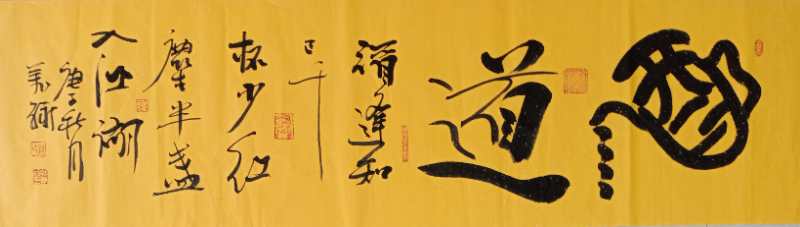 酒道
酒逢知
己千
杯少红
塵半盏
入江湖
庚子秋月